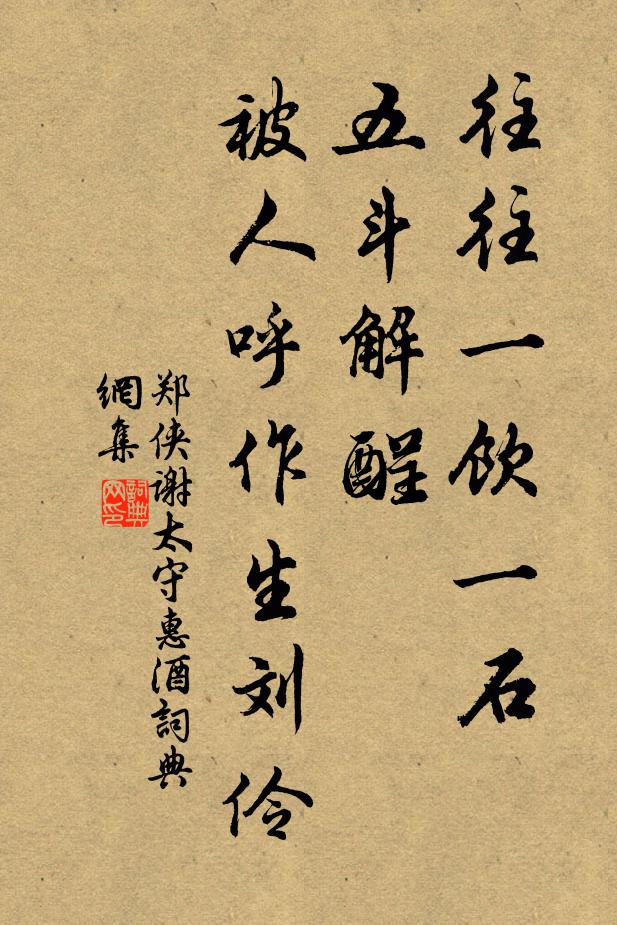 往往一饮一石
五斗解酲
被人呼作生刘伶
郑侠谢太守惠酒詞典
網集
詞典
网印